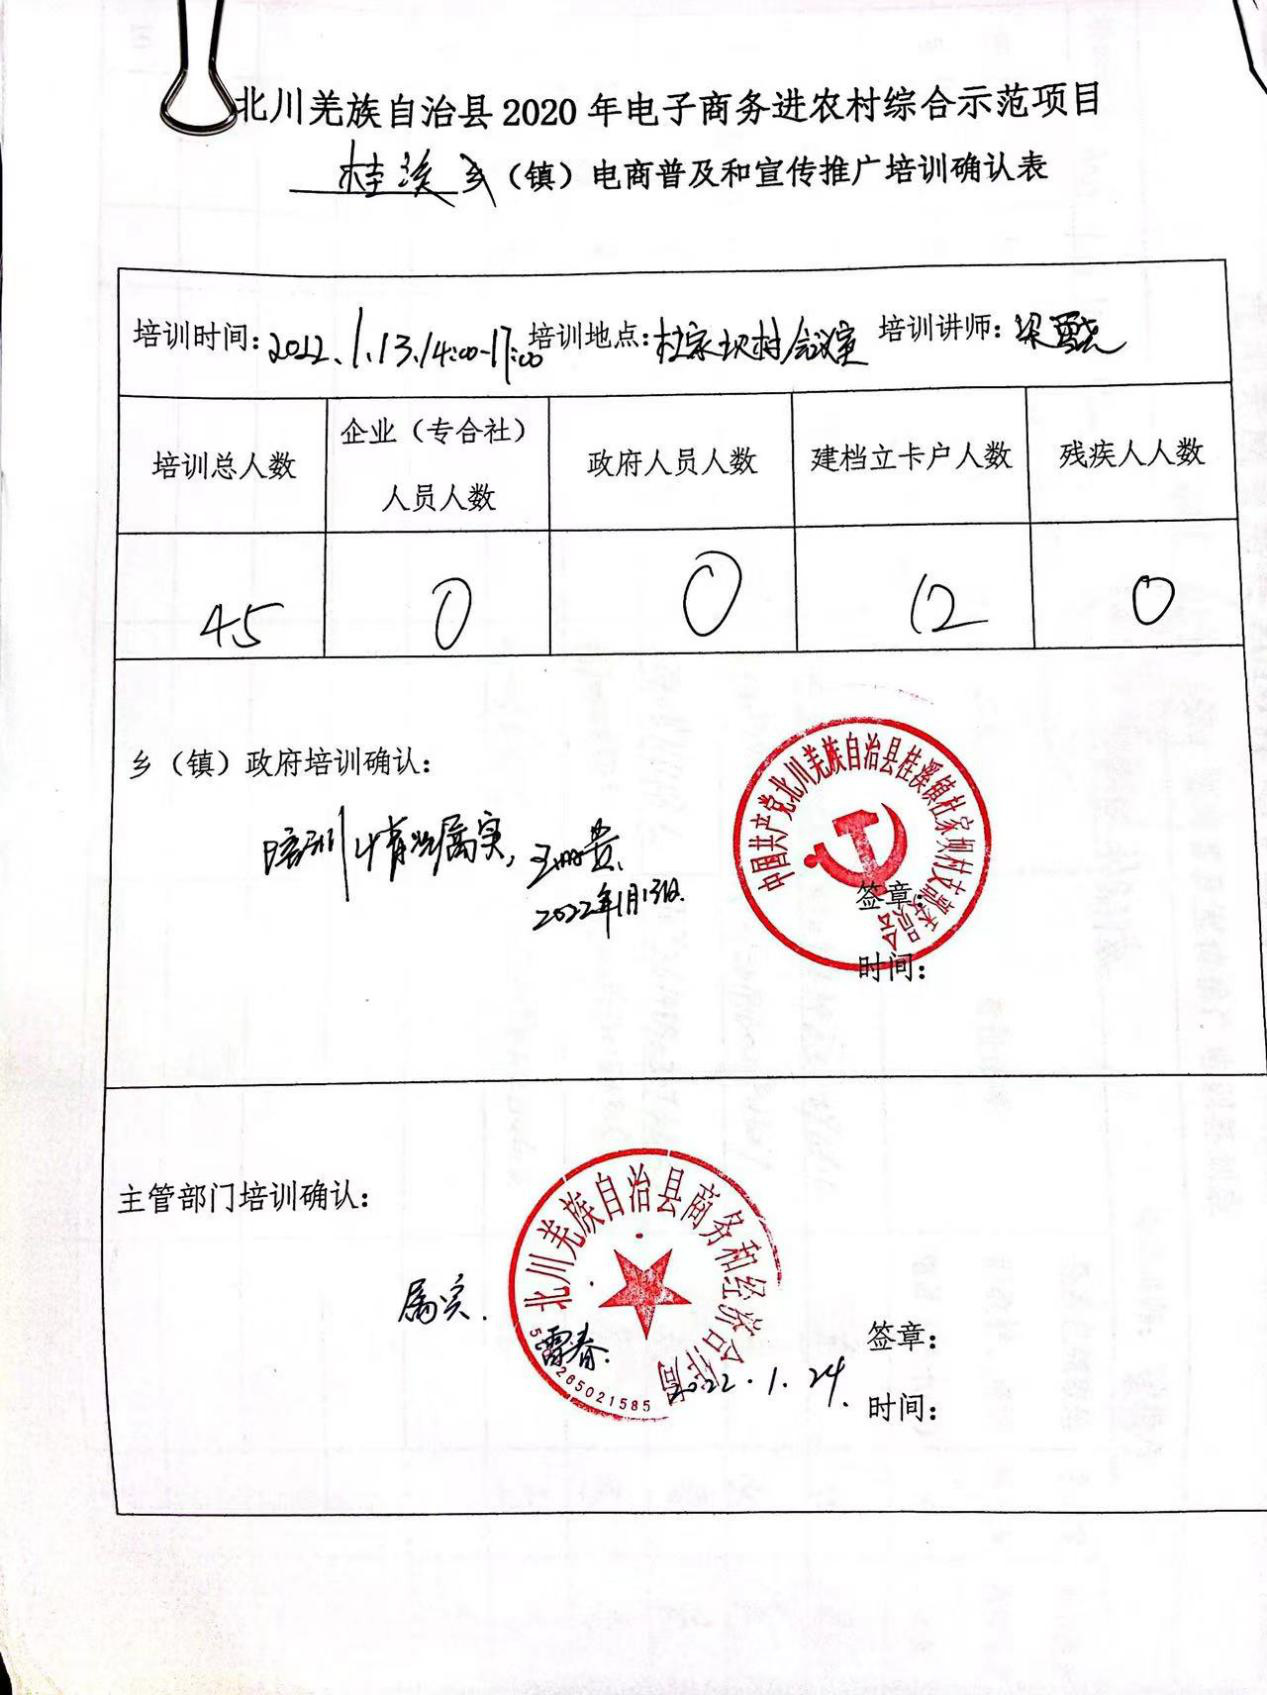 北川羌族自治县 2020 年电子商务进农村综合示范项目
桂溪乡（镇）电商普及和宣传推广培训确认表
培训时间：2022.1.13.14:00-17:00 培训地点：杜家坝村会议室 培训讲师：梁
培训总人数 企业（专合社）人员人数 政府人员人数 建档立卡户人数 残疾人人数
45 0 0 12 0
乡（镇）政府培训确认：
中国共产党北川羌族自治县桂溪镇杜家坝村支部委员会
培训情况属实，
2022年1月13日.
签章：
时间：
主管部门培训确认：
北川羌族自治县商务和经济合作局
属实.
雷春.
265021585
2022.1.24.
签章：
时间：